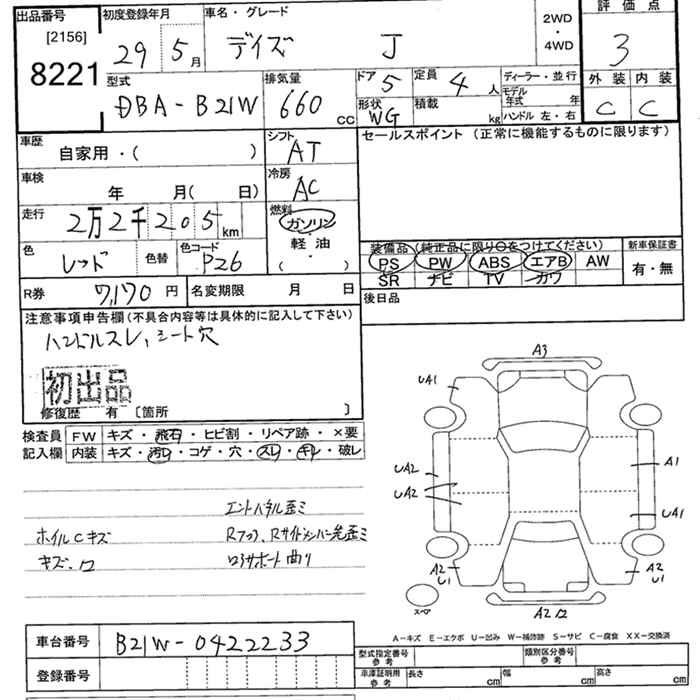 出品番号 初度登録年月 車名・グレード 2WD・4WD 評価点
[2156] 29 5月 デイズ J 3
8221 型式 排気量 ドア 5 定員 4人 ディーラー・並行 外装 内装
DBA-B21W 660cc 形状 WG 積載 kg モデル年式 年 ハンドル 左・右 C C
車歴 自家用・( ) シフト AT セールスポイント (正常に機能するものに限ります)
車検 年 月( 日) 冷房 AC
走行 2万2千205km 燃料 ガソリン・軽油・( )
色 レッド 色替 色コード P26 装備品 (純正品に限り○をつけてください) 新車保証書
PS PW ABS エアB AW 有・無
SR ナビ TV カワ
R券 7,170円 名変期限 月 日 後日品
注意事項申告欄 (不具合内容等は具体的に記入して下さい)
ハンドルスレ、シート穴
初出品
修復歴 有 〔箇所 〕
検査員記入欄 FW キズ・飛石・ヒビ割・リペア跡・×要
内装 キズ・汚レ・コゲ・穴・スレ・キレ・破レ
エンドパネル歪ミ
ホイルCキズ Rフロア、Rサイドメンバー先歪ミ
キズ、ロ ロアサポート曲リ
A3
UA1
A1
UA2
UA2
UA1
A2 U1 A2 U1
スペア
A2 ロ
A-キズ E-エクボ U-凹み W-補修跡 S-サビ C-腐食 XX-交換済
車台番号 B21W-0422233 型式指定番号 参考 類別区分番号 参考
登録番号 車庫証明用 参考 長さ cm 幅 cm 高さ cm